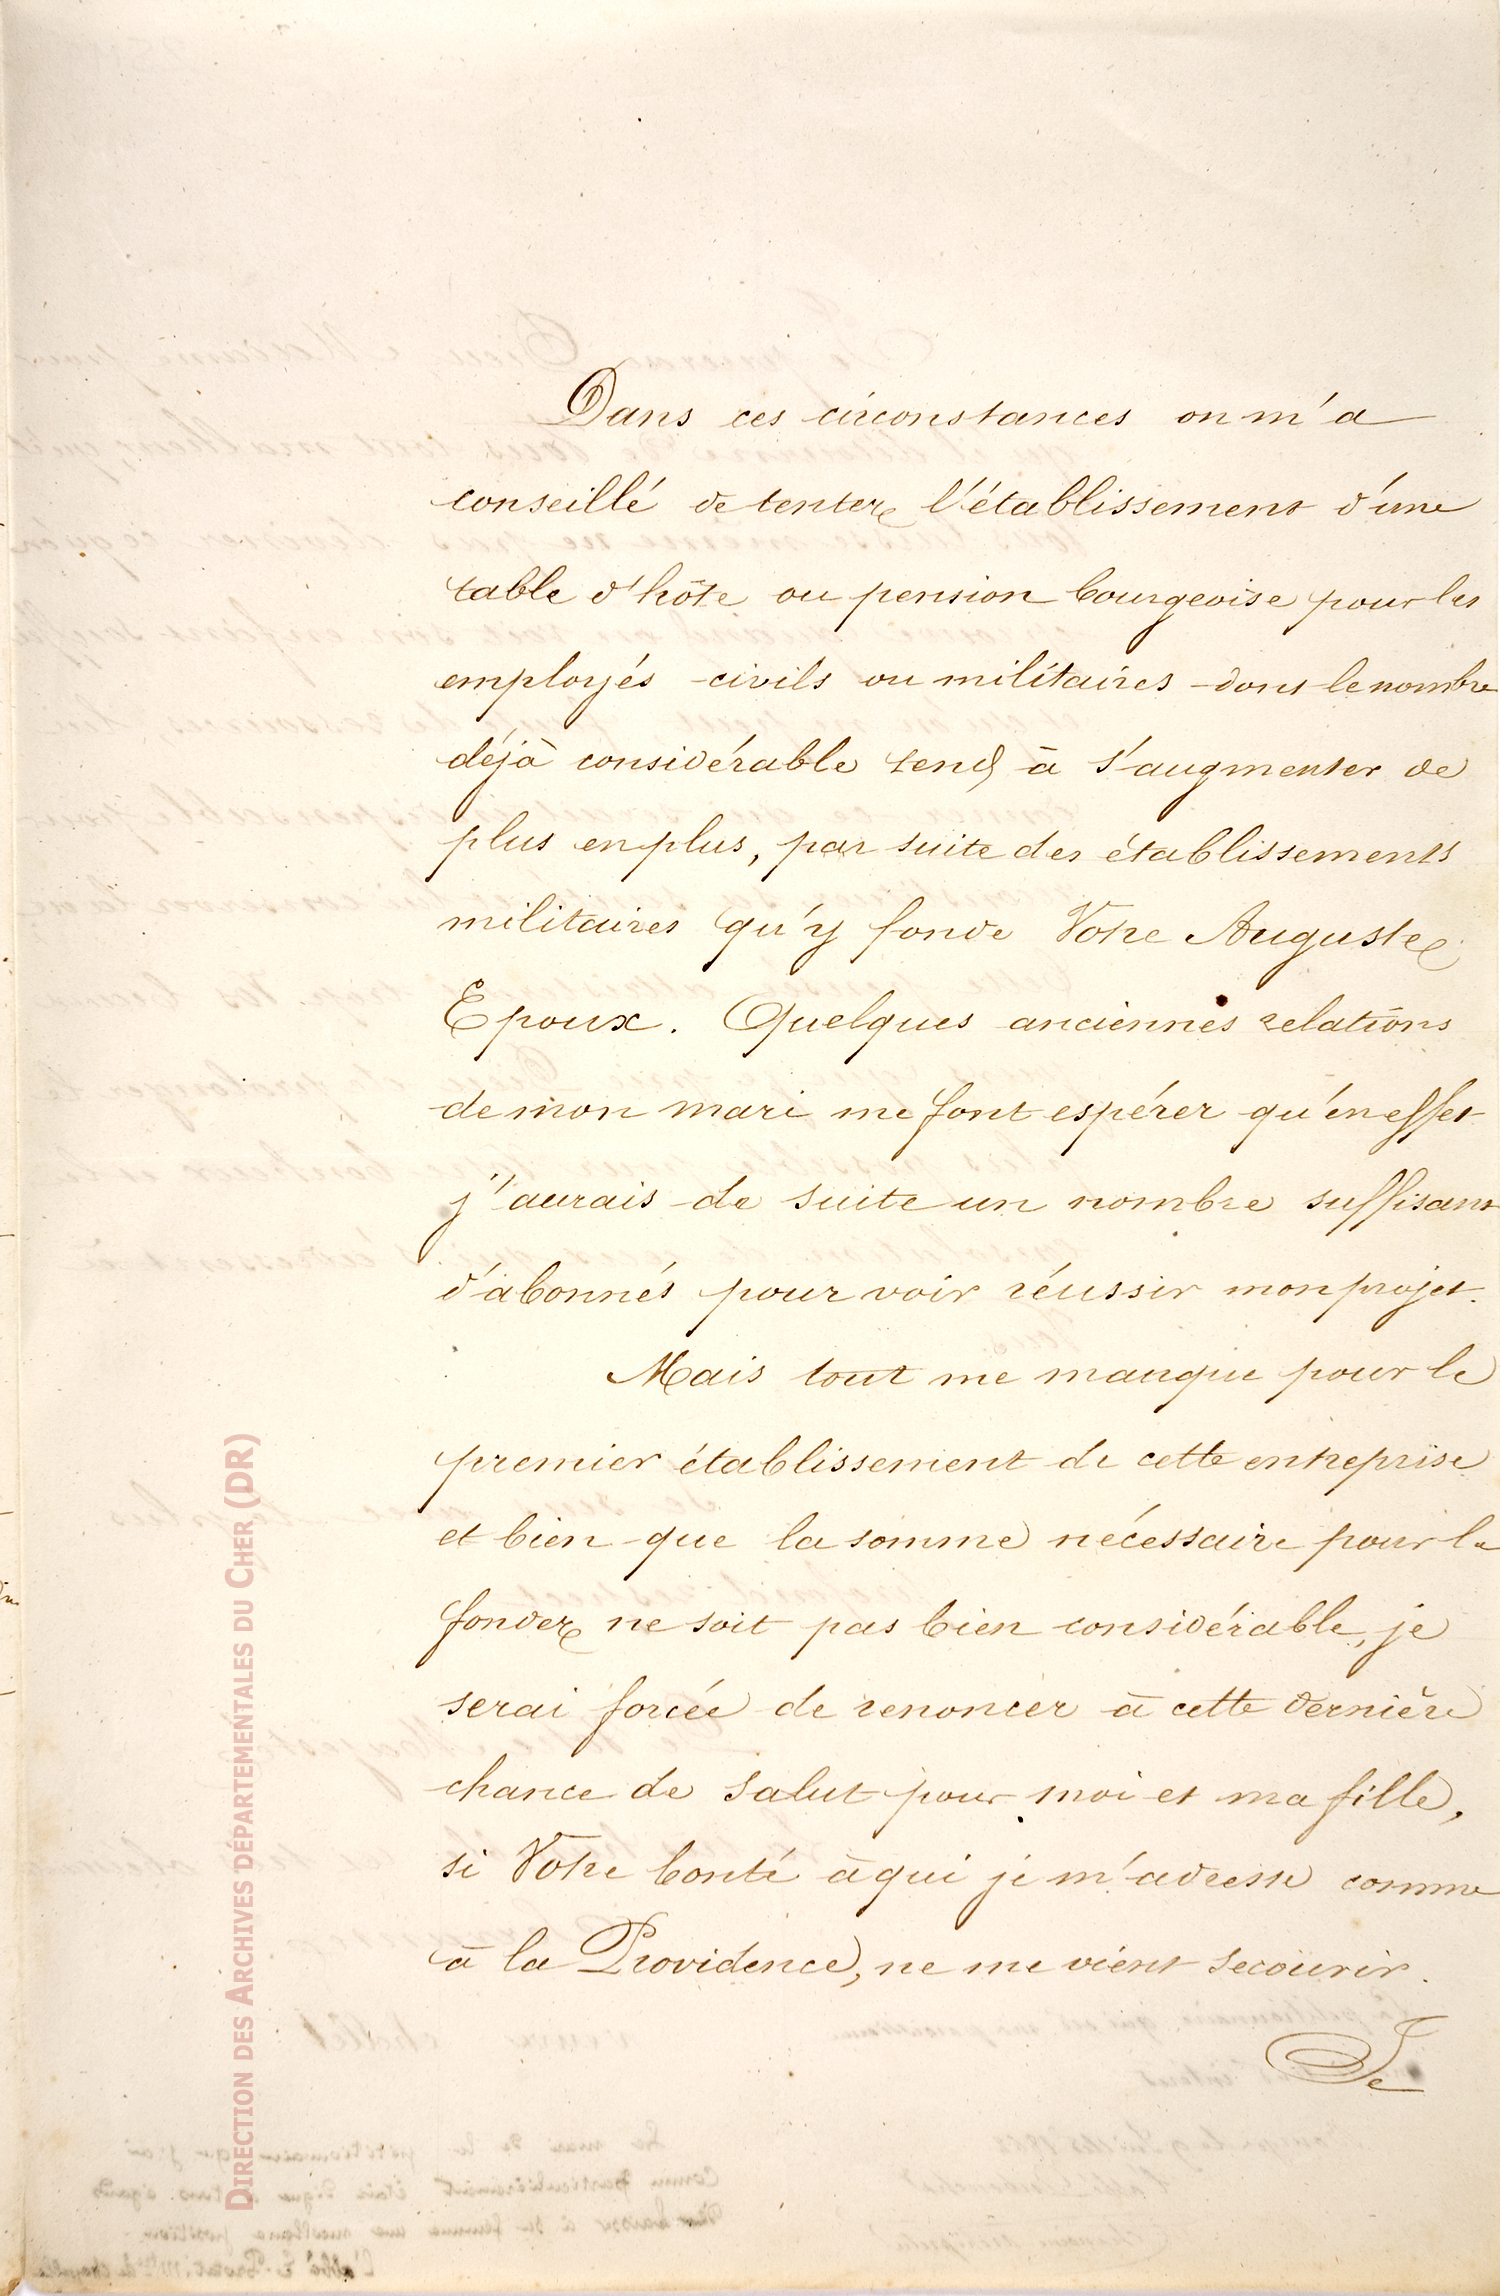 Dans ces circonstances on m'a
conseillé de tenter l'établissement d'une
table d'hôte ou pension bourgeoise pour les
employés civils ou militaires dont le nombre
déjà considérable tend à s'augmenter de
plus en plus, par suite des établissements
militaires qu'y fonde Votre Auguste
Epoux. Quelques anciennes relations
de mon mari me font espérer qu'en effet
j'aurais de suite un nombre suffisant
d'abonnés pour voir réussir mon projet.
Mais tout me manque pour le
premier établissement de cette entreprise
et bien que la somme nécessaire pour la
fonder ne soit pas bien considérable, je
serai forcée de renoncer à cette dernière
chance de salut pour moi et ma fille,
si Votre bonté à qui je m'adresse comme
à la Providence, ne me vient secourir.
Je
DIRECTION DES ARCHIVES DÉPARTEMENTALES DU CHER (DR)